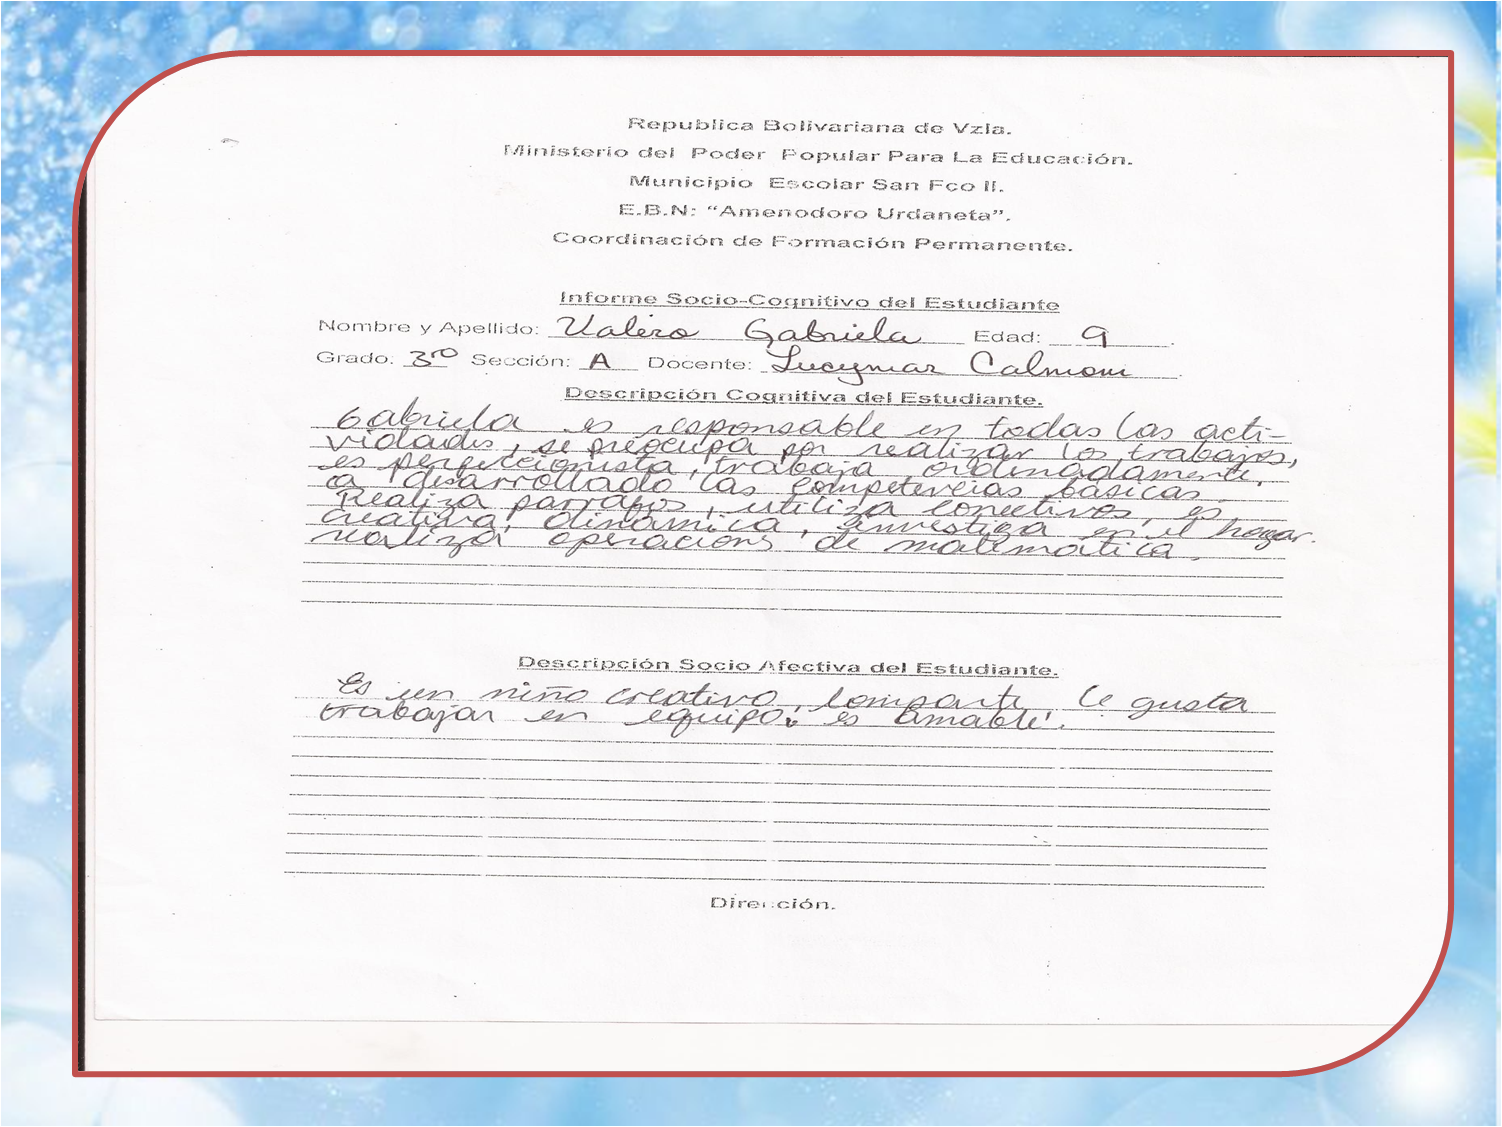 Republica Bolivariana de Vzla.
Ministerio del Poder Popular Para La Educación.
Municipio Escolar San Fco II.
E.B.N: “Amenodoro Urdaneta”.
Coordinación de Formación Permanente.
Informe Socio-Cognitivo del Estudiante
Nombre y Apellido: Valero Gabriela Edad: 9
Grado: 3ro Sección: A Docente: Lucymar
Descripción Cognitiva del Estudiante.
Gabriela es responsable en todas las acti-
vidades, se preocupa por realizar los trabajos,
es perfeccionista, trabaja ordenadamente,
a desarrollado las competencias básicas.
Realiza parrafos, utiliza conectivos, es
creativa, dinámica, investiga en el hogar.
realiza operacions de matemática.
Descripción Socio Afectiva del Estudiante.
Es un niño creativo, comparte, le gusta
trabajar en equipo. es amable.
Dirección.